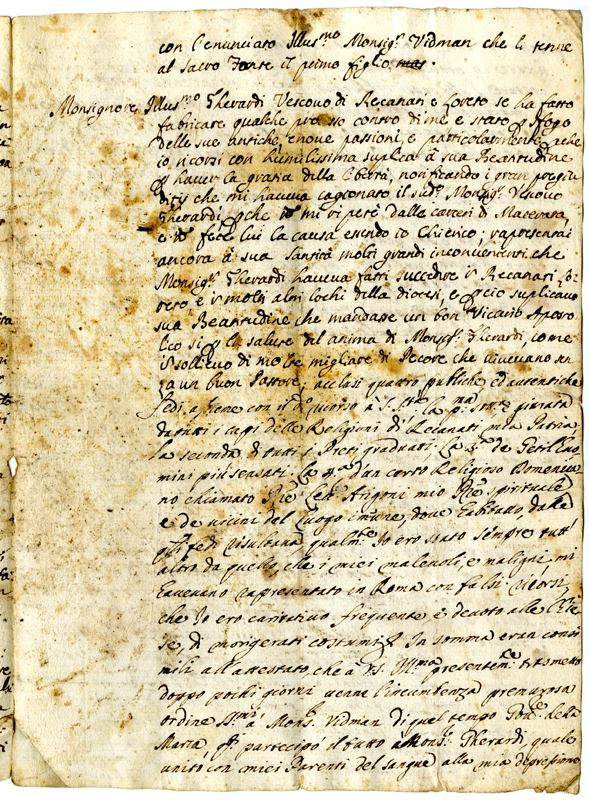 con l'enunciato Illus.mo Monsig.r Vidman che li tenne
al Sacro Fonte il primo figlio.
Monsignore Illus.mo Gherardi Vescovo di Recanati e Loreto se ha fatto
fabricare qualche processo contro di me è stato p sfogo
delle sue antiche, e nove passioni, e particolarmente pche
io ricorsi con humilissima suplica a sua Beatitudine
p haver la gratia della libertà, notificando i gran pregiu
ditij che mi haveva cagionato il sud.o Monsig.r Vescovo
Gherardi, pche mi ripetè dalle carceri di Macerata,
e fece lui la causa essendo io Chierico; rapresentai
ancora à sua Santità molti grandi inconvenienti che
Monsig.r Gherardi haveva fatti succedere in Recanati, Lo:
reto, e in molti altri lochi della diocesi, e pciò suplicavo
sua Beatitudine che mandasse un bon Vicario Aposto
lico si p la salute del anima di Monsig.r Gherardi, come
p sollievo di molte migliare di Pecore che vivevano sen
za un buon Pastore; acclusi quattro publiche, ed autentiche
fedi, assieme con il d.o ricorso à S. S.tà la p.ma giurata
da tutti i capi delle Religioni di Recanati mia Patria
la seconda di tutti i Preti graduati, la 3.a de Gentilhuo
mini più sensati, la 4.a d'un certo Religioso Domenica
no chiamato Arigoni mio spirituale
e de vicini del luogo dove habitavo dalle
quali fedi risultava, qualm.te Io ero stato sempre tutt'
altro da quello, che i miei malevoli, e maligni mi
havevano rapresentato in Roma con falsi ricorsi
che Io ero caritativo frequente e devoto alle Chie
se, di morigerati costumi, In somma eran consi
mili all'attestato, che a V.S. Ill.ma presentem.te trasmetto
doppo pochi giorni venne l'incumbenza premurosa
ordine à Mons.r Vidman di quel tempo Gov.re della
Marca, partecipò il tutto à Mons.r Gherardi, quale
unito con miei Parenti del sangue alla mia depressione